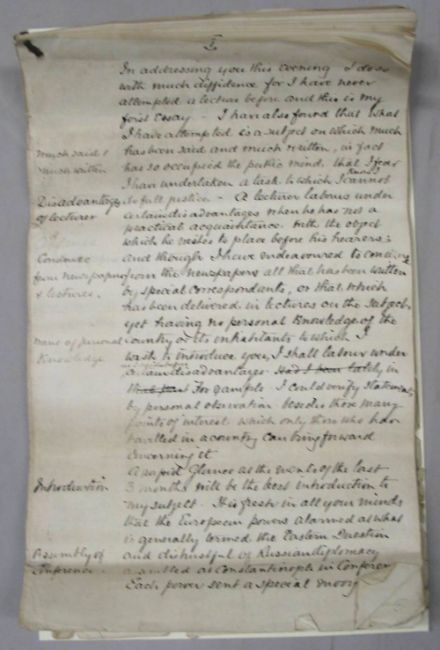 1
In addressing you this evening I do so
with much diffidence for I have never
attempted a lecture before and this is my
first essay - I have also found that what
I have attempted is a subject on which much
much said &
has been said and much written, in fact
much written
has so occupied the public mind that I fear
I have undertaken a task to which I cannot
Disadvantages
do full justice - A lecturer labours under
of lecturer
certain disadvantages when he has not a
practical acquaintance with the object
which he wishes to place before his hearers;
Condense
and though I have endeavoured to condense
from newspapers
from the newspapers all that has been written
& lectures.
by special correspondents, or that which
has been delivered in lectures on the subject
yet having no personal knowledge of the
want of personal
country or its inhabitants to which I
knowledge
wish to introduce you, I shall labour under
disadvantages Had I been lately in
For example I could verify statements
by personal observation besides those many
points of interest which only those who have
travelled in a country can bring forward
concerning it
A rapid glance at the events of the last
Introduction
3 months will be the best introduction to
my subject. It is fresh in all your minds
that the European powers alarmed at what
is generally termed the Eastern Question
Assembly of
and distrustful of Russian diplomacy
Conference
assembled at Constantinople in Conference
Each power sent a special envoy